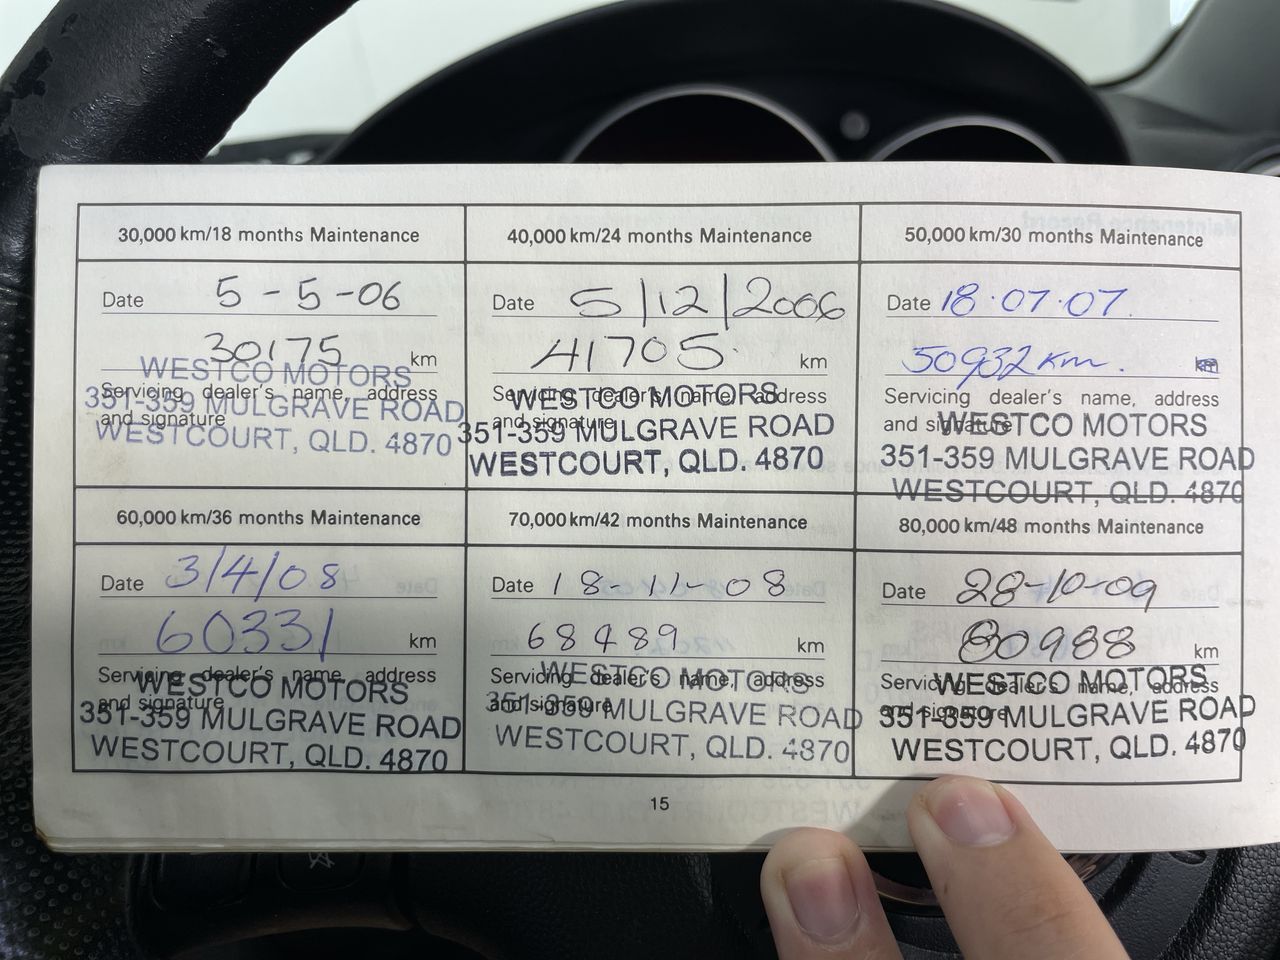 30,000 km/18 months Maintenance
Date 5-5-06
30175 km
Servicing dealer's name, address
and signature
WESTCO MOTORS
351-359 MULGRAVE ROAD
WESTCOURT, QLD. 4870
40,000 km/24 months Maintenance
Date 5/12/2006
41705 km
Servicing dealer's name, address
and signature
WESTCO MOTORS
351-359 MULGRAVE ROAD
WESTCOURT, QLD. 4870
50,000 km/30 months Maintenance
Date 18.07.07.
50932 km. km
Servicing dealer's name, address
and signature
WESTCO MOTORS
351-359 MULGRAVE ROAD
WESTCOURT, QLD. 4870
60,000 km/36 months Maintenance
Date 3/4/08
60331 km
Servicing dealer's name, address
and signature
WESTCO MOTORS
351-359 MULGRAVE ROAD
WESTCOURT, QLD. 4870
70,000 km/42 months Maintenance
Date 18-11-08
68489 km
Servicing dealer's name, address
and signature
WESTCO MOTORS
351-359 MULGRAVE ROAD
WESTCOURT, QLD. 4870
80,000 km/48 months Maintenance
Date 28-10-09
80988 km
Servicing dealer's name, address
and signature
WESTCO MOTORS
351-359 MULGRAVE ROAD
WESTCOURT, QLD. 4870
15